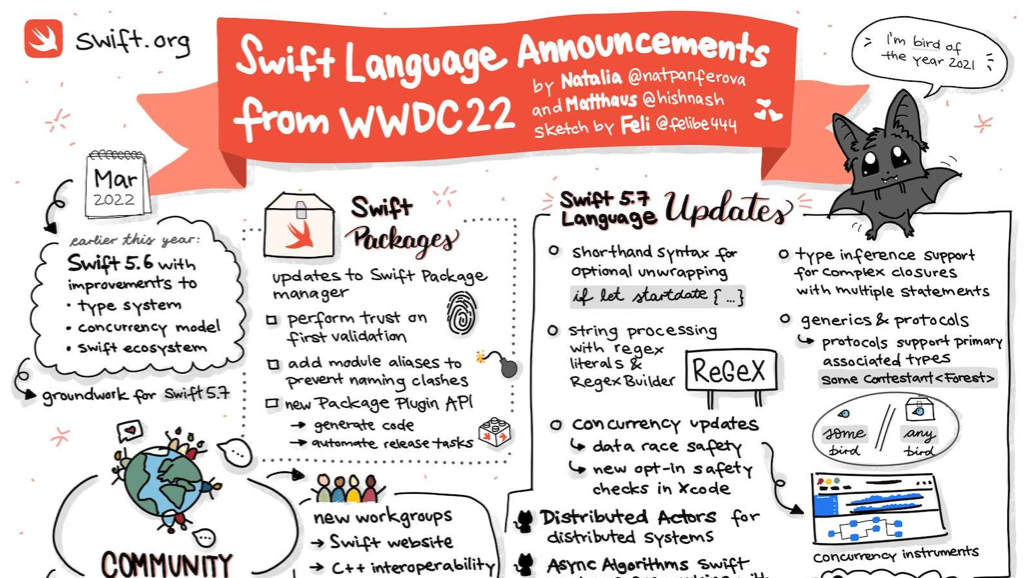 Swift.org
Swift Language Announcements
from WWDC22
by Natalia @natpanferova
and Matthaus @hishnash
sketch by Feli @felibe444
I'm bird of
the year 2021
Mar
2022
earlier this year:
Swift 5.6 with
improvements to
• type system
• concurrency model
• swift ecosystem
groundwork for Swift 5.7
COMMUNITY
Swift
Packages
updates to Swift Package
manager
perform trust on
first validation
add module aliases to
prevent naming clashes
new Package Plugin API
→ generate code
→ automate release tasks
new workgroups
→ Swift website
→ C++ interoperability
Swift 5.7
Language Updates
shorthand syntax for
optional unwrapping
if let startdate {...}
string processing
with regex
literals &
RegexBuilder
ReGeX
concurrency updates
↳ data race safety
↳ new opt-in safety
checks in Xcode
Distributed Actors for
distributed systems
Async Algorithms Swift
type inference support
for complex closures
with multiple statements
generics & protocols
↳ protocols support primary
associated types
some Contestant<Forest>
some
bird
//
any
bird
concurrency instruments